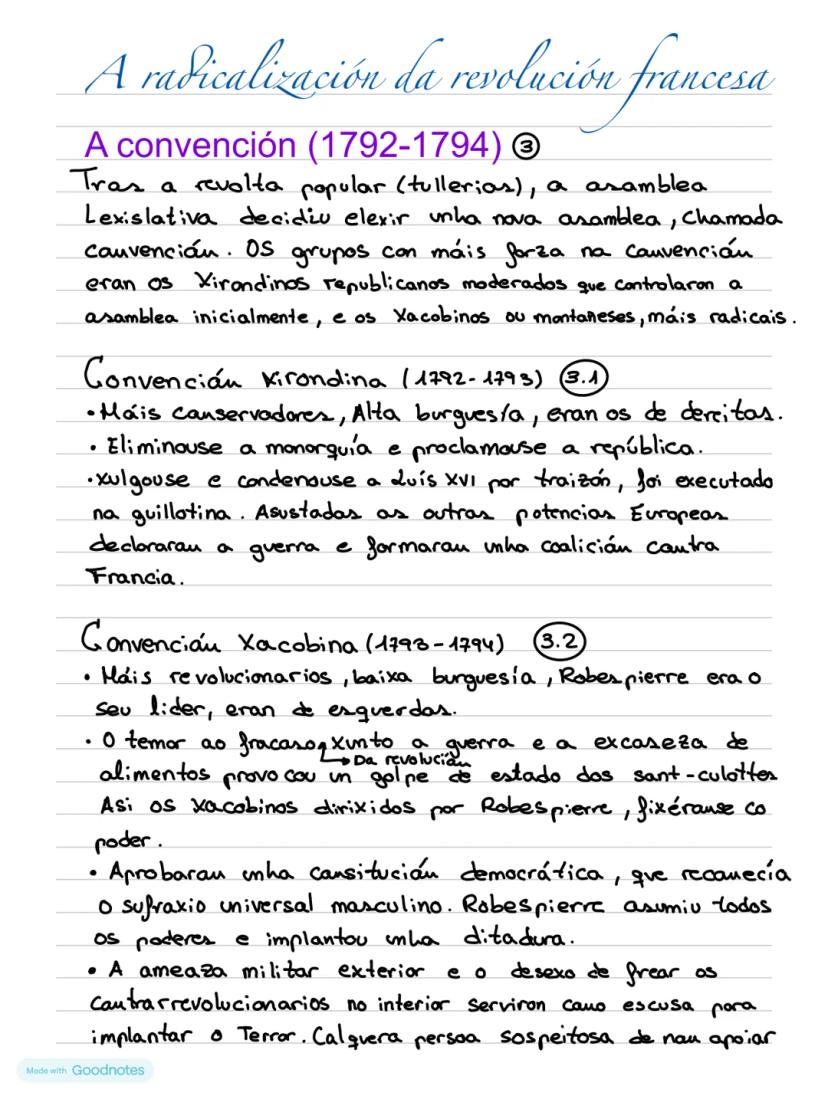 A radicalización da revolución francesa
A convención (1792-1794) ③
Tras a revolta popular (tullerias), a asamblea
Lexislativa decidiu elexir unha nova asamblea, chamada
convención. Os grupos con máis forza na convención
eran os Xirondinos republicanos moderados que controlaron a
asamblea inicialmente, e os Xacobinos ou montañeses, máis radicais.
Convención Xirondina (1792-1793) 3.1
• Máis conservadores, Alta burguesía, eran os de dereitas.
• Eliminouse a monarquía e proclamouse a república.
• Xulgouse e condenouse a Luís XVI por traizón, foi executado
na guillotina. Asustadas as outras potencias Europeas
declararan a guerra e formaran unha coalición contra
Francia.
Convención Xacobina (1793-1794) 3.2
• Máis revolucionarios, baixa burguesía, Robespierre era o
seu líder, eran de esquerdas.
• O temor ao fracaso, xunto a guerra e a excaseza de
Da revolución
alimentos provocou un golpe de estado dos sant-culottes
Asi os xacobinos dirixidos por Robespierre, fixéronse co
poder.
• Aprobaran unha consitución democrática, que recoñecía
o sufraxio universal masculino. Robespierre asumiu todos
os poderes e implantou unha ditadura.
• A ameaza militar exterior e o desexo de frear os
contrarrevolucionarios no interior serviron como escusa para
implantar o Terror. Calquera persoa sospeitosa de non apoiar
Made with Goodnotes